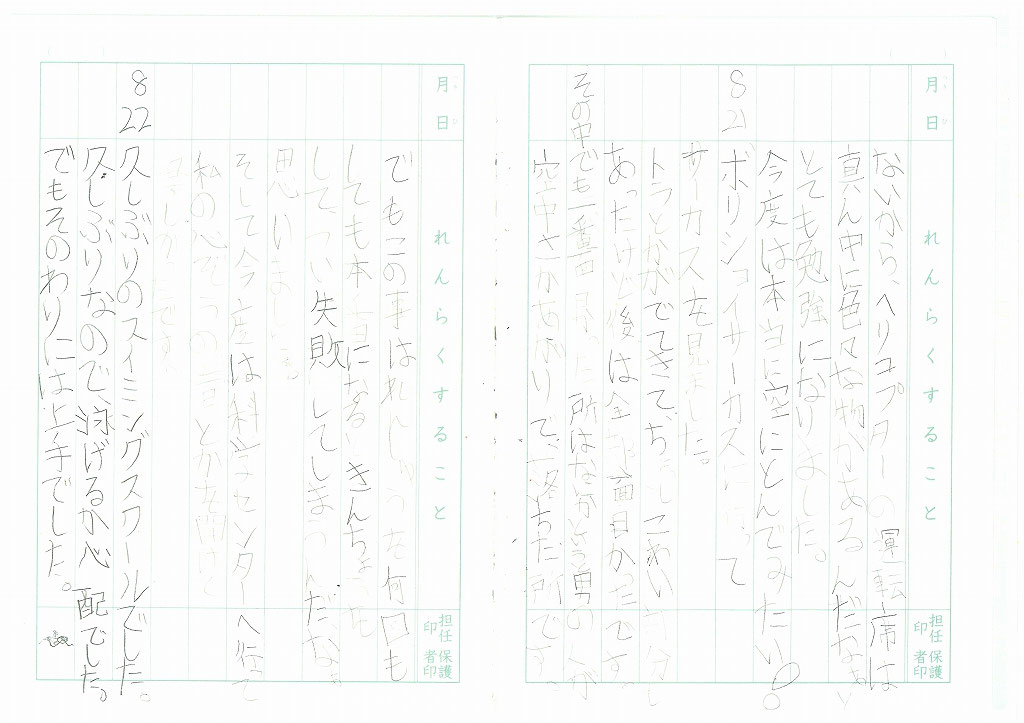 月日
れんらくすること
担任印
保護者印
ないから、ヘリコプターの運転席は
真ん中に色々な物があるんだなぁい
とても勉強になりました。
今度は本当に空にとんでみたい。
8 21
ボリショイサーカスに行って
サーカスを見ました。
トラとかがでてきて、ちょっとこわい
あったけど後は全部面白かったです。
その中でも一番
所はないかという男の人が
空中さかあがりで、落ちた所です。
月日
れんらくすること
担任印
保護者印
でもこの事はれんしゅうを何回も
しても本当になるときんちょうも
して、つい失敗してしまうんだなぁ
思いました。
そして今度は科学センターへ行って
私の心ぞうの音とかを聞けて
楽しかったです。
8 22
久しぶりのスイミングスクールでした。
久しぶりなので、泳げるか心配でした。
でもそのわりには上手でした。